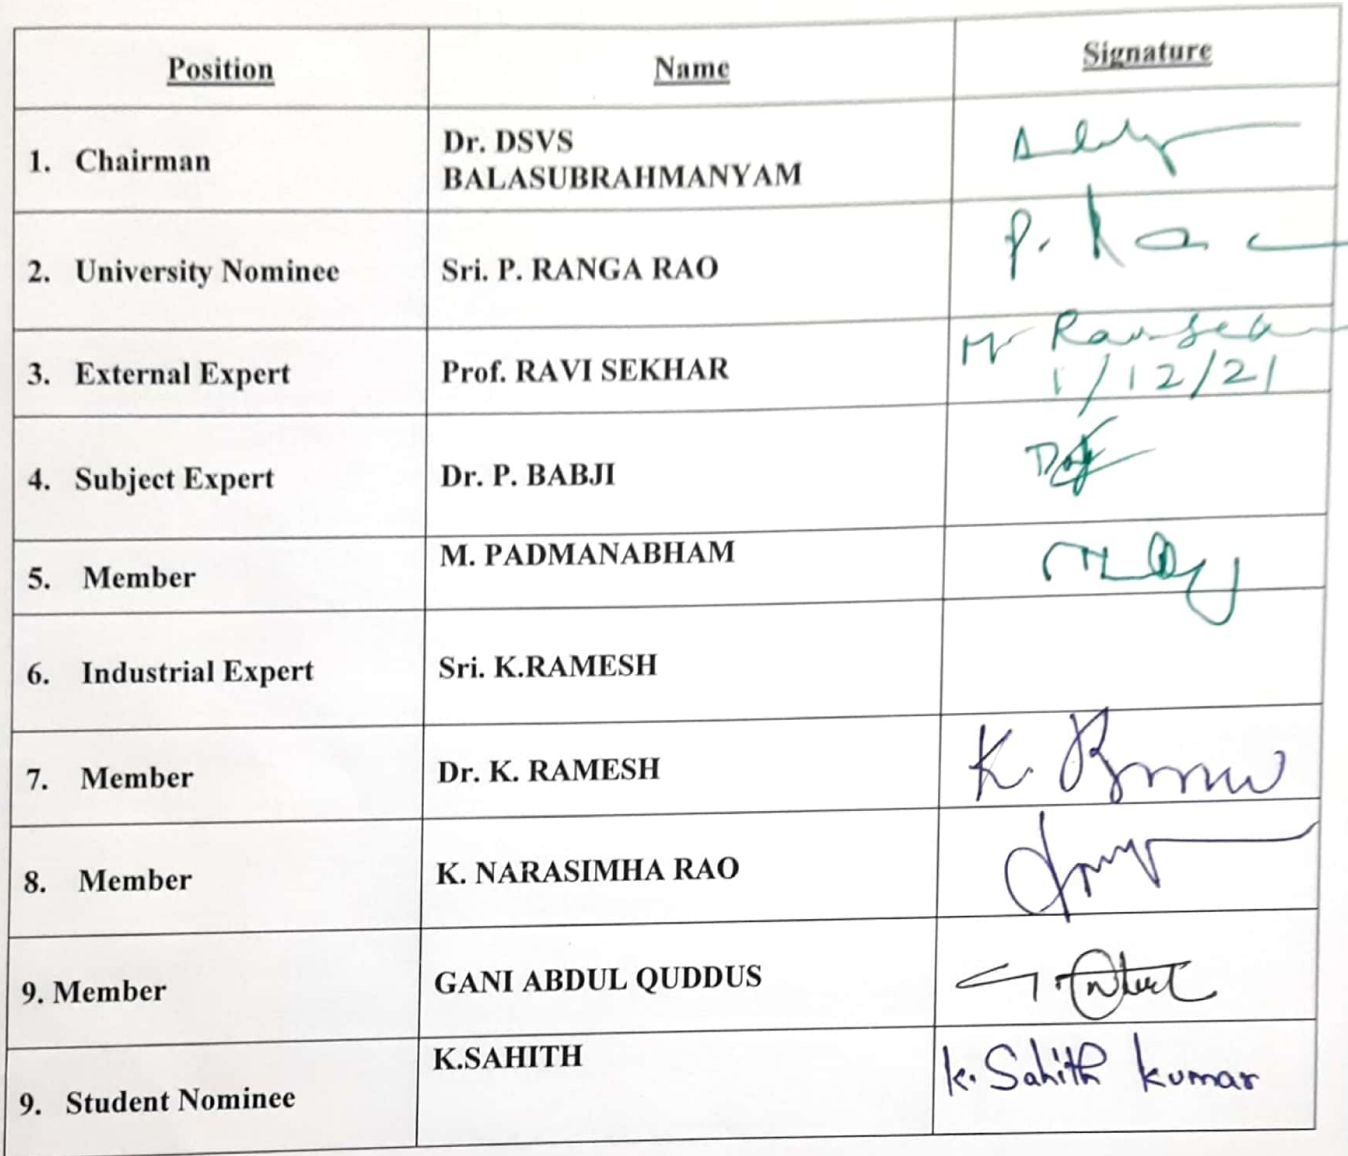 Position Name Signature
1. Chairman Dr. DSVS
BALASUBRAHMANYAM
2. University Nominee Sri. P. RANGA RAO P.
3. External Expert Prof. RAVI SEKHAR
1/12/21
4. Subject Expert Dr. P. BABJI
5. Member M. PADMANABHAM
6. Industrial Expert Sri. K.RAMESH
7. Member Dr. K. RAMESH K.
8. Member K. NARASIMHA RAO
9. Member GANI ABDUL QUDDUS
9. Student Nominee K.SAHITH k. Sahith kumar